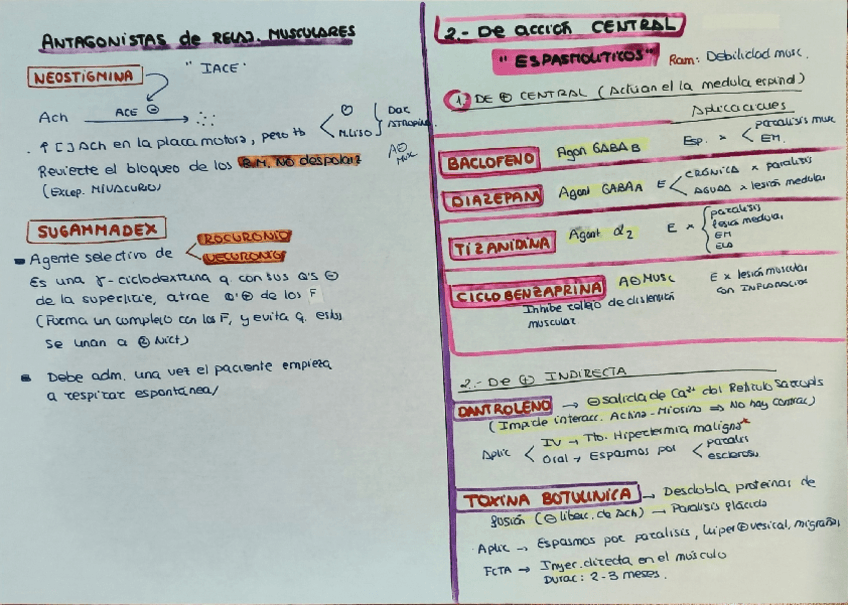 ANTAGONISTAS de RELAJ. MUSCULARES
NEOSTIGMINA
"IACE"
Ach ACE ⊖
↑[ ] Ach en la placa motora, pero tb
M.liso
ATROPINA
Revierte el bloqueo de los B.M. NO despolariz
(Excep. MIVACURIO)
SUGAMMADEX
Agente selectivo de
ROCURONIO
VECURONIO
Es una γ-ciclodextrina q. con sus Q's ⊖
de la superficie, atrae Q's ⊕ de los F
(Forma un complejo con los F, y evita q. estos
se unan a Nict)
Debe adm. una vez el paciente empieza
a respirar espontánea/
2.- De acción CENTRAL
"ESPASMOLITICOS" Ram: Debilidad musc.
1. DE ⊕ CENTRAL (Actúan el la medula espinal)
Aplicaciones
BACLOFENO Agon GABA B Esp. x
paralisis musc
EM.
DIAZEPAM Agon GABAA E
CRÓNICA x paralisis
AGUDA x lesión medular
TIZANIDINA Agont α2 E x
paralisis
lesión medular
EM
ELA
CICLOBENZAPRINA A⊖MUSC E x lesión muscular
con INFLAMACIÓN
Inhibe reflejo de distensión
muscular
2.- DE ⊕ INDIRECTA
DANTROLENO → ⊖ salida de Ca²⁺ del Retículo Sarcopls
(Impide interacc. Actina-Miosina ⇒ No hay contrac)
Aplic
IV → Tto. Hipertermia maligna*
Oral → Espasmos por
paralisis
esclerosis
TOXINA BOTULINICA → Desdobla proteinas de
fusión (⊖ liberc. de Ach) → Paralisis flácida
Aplic → Espasmos por paralisis, hiper⊕vesical, migrañas
FCTA → Inyec. directa en el músculo
Durac: 2-3 meses.